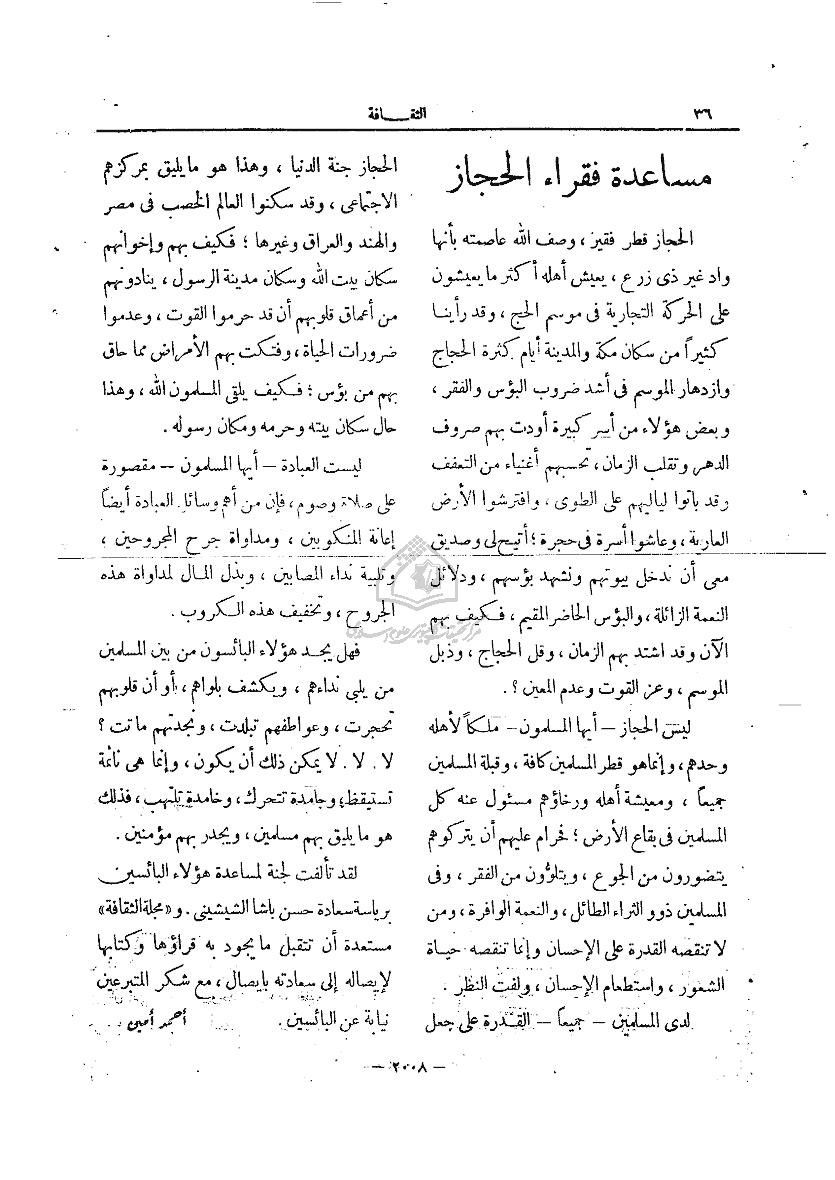 ٣٦
الثقـــافة
مساعدة فقراء الحجاز
الحجاز قطر فقير، وصف الله عاصمته بأنها
واد غير ذى زرع، يعيش أهله أكثر ما يعيشون
على الحركة التجارية فى موسم الحج، وقد رأينا
كثيراً من سكان مكة والمدينة أيام كثرة الحجاج
وازدهار الموسم فى أشد ضروب البؤس والفقر،
وبعض هؤلاء من أسر كبيرة أودت بهم صروف
الدهر وتقلب الزمان، تحسبهم أغنياء من التعفف
وقد باتوا ليالهم على الطوى، وافترشوا الأرض
العارية، وعاشوا أسرة فى حجرة؛ أتيح لى وصديق
معى أن ندخل بيوتهم ونشهد بؤسهم، ودلائل
النعمة الزائلة، والبؤس الحاضر المقيم، فكيف بهم
الآن وقد اشتد بهم الزمان، وقل الحجاج، وذبل
الموسم، وعز القوت وعدم المعين؟.
ليس الحجاز – أيها المسلمون – ملكاً لأهله
وحدهم، وإنما هو قطر المسلمين كافة، وقبلة المسلمين
جميعاً، ومعيشة أهله ورخاؤهم مسئول عنه كل
المسلمين فى بقاع الأرض؛ فحرام عليهم أن يتركوهم
يتضورون من الجوع، ويتلوُّون من الفقر، وفى
المسلمين ذوو الثراء الطائل، والنعمة الوافرة، ومن
لا تنقصه القدرة على الإحسان وإنما تنقصه حياة
الشعور، واستطعام الإحسان، ولفت النظر.
لدى المسلمين – جميعاً – القدرة على جعل
الحجاز جنة الدنيا، وهذا هو ما يليق بمركزهم
الاجتماعى، وقد سكنوا العالم الخصب فى مصر
والهند والعراق وغيرها؛ فكيف بهم وإخوانهم
سكان بيت الله وسكان مدينة الرسول، ينادونهم
من أعماق قلوبهم أن قد حرموا القوت، وعدموا
ضرورات الحياة، وفتكت بهم الأمراض مما حاق
بهم من بؤس؛ فكيف يلقى المسلمون الله، وهذا
حال سكان بيته وحرمه ومكان رسوله.
ليست العبادة – أيها المسلمون – مقصورة
على صلاة وصوم، فإن من أهم وسائل العبادة أيضاً
إعانة المنكوبين، ومداواة جرح المجروحين،
وتلبية نداء المصابين، وبذل المال لمداواة هذه
الجروح، وتخفيف هذه الكروب.
فهل يجد هؤلاء البائسون من بين المسلمين
من يلبى نداءهم، ويكشف بلواهم، أو أن قلوبهم
تحجرت، وعواطفهم تبلدت، ونجدتهم ماتت؟
لا. لا. لا يمكن ذلك أن يكون، وإنما هى نائمة
تستيقظ، وجامدة تتحرك، وخامدة تلتهب، فذلك
هو ما يليق بهم مسلمين، ويجدر بهم مؤمنين.
لقد تألفت لجنة لمساعدة هؤلاء البائسين
برياسة سعادة حسن باشا الشيشينى. و«مجلة الثقافة»
مستعدة أن تتقبل ما يجود به قراؤها وكتابها
لإيصاله إلى سعادته بإيصال، مع شكر المتبرعين
نيابة عن البائسين. أحمد أمين
– ٢٠٠٨ –